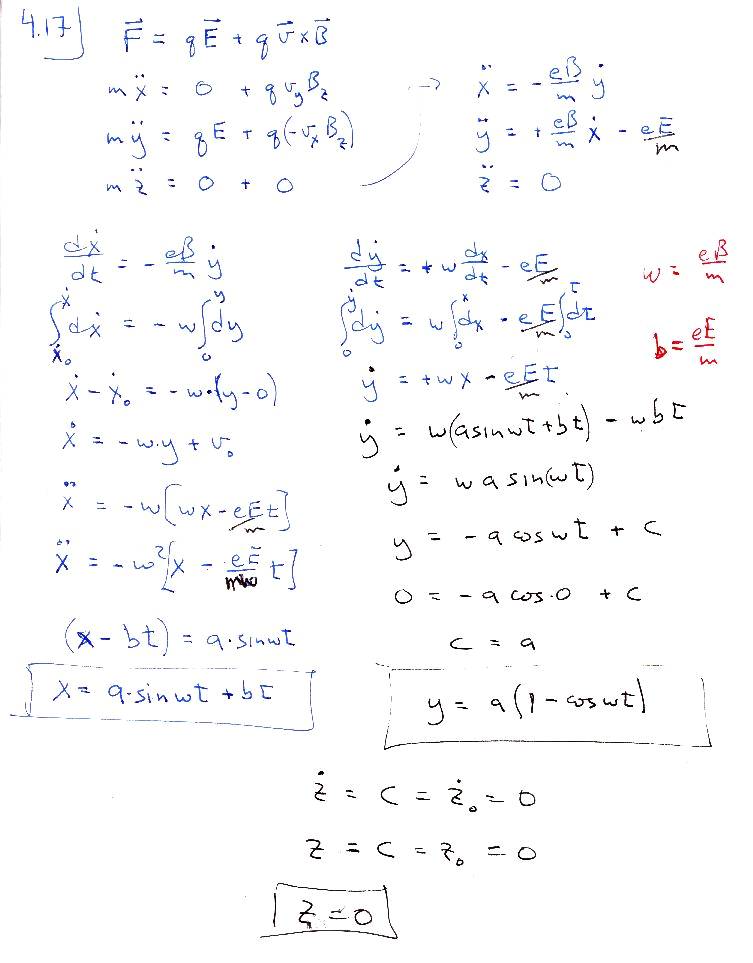 4.17
F⃗ = qE⃗ + q v⃗ x B⃗
mẍ = 0 + q v_y B_z → ẍ = - eB/m ẏ
mÿ = qE + q(-v_x B_z) ÿ = + eB/m ẋ - eE/m
mz̈ = 0 + 0 z̈ = 0
dẋ/dt = - eB/m ẏ
∫_{ẋ₀}^{ẋ} dẋ = - w ∫_0^y dy
ẋ - ẋ₀ = -w·(y-0)
ẋ = -w·y + v₀
ẍ = -w[wx - eE/m t]
ẍ = -w²[x - eE/mw t]
(x - bt) = a·sinwt
x = a·sinwt + bt
dẏ/dt = + w dx/dt - eE/m
∫_0^ẏ dẏ = w ∫_0^x dx - eE/m ∫_0^t dt
ẏ = +wx - eE/m t
ẏ = w(a sinwt + bt) - wbt
ẏ = w a sin(wt)
y = -a cos wt + c
0 = -a cos·0 + c
c = a
y = a(1 - cos wt)
w = eB/m
b = eE/m
ż = c = ż₀ = 0
z = c = z₀ = 0
z = 0